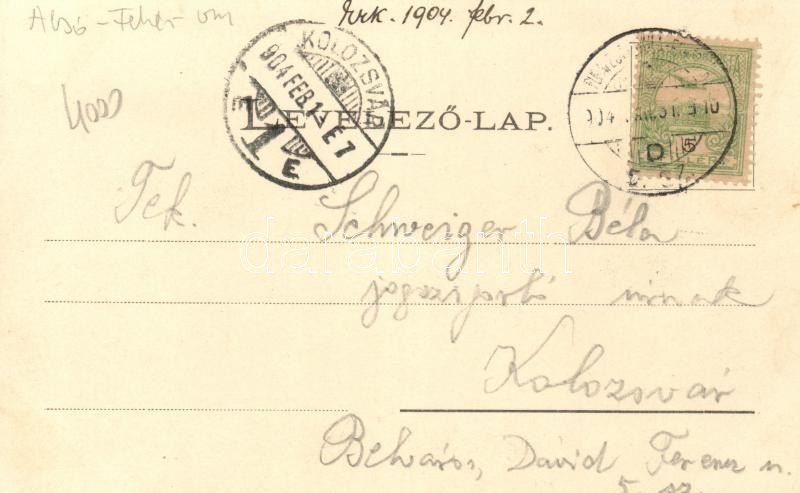 Alsó-Fehér vm
Érk. 1904. febr. 2.
4000
KOLOZSVÁR
904 FEB. 1
E 7
1
E
LEVELEZŐ-LAP.
904
D
5
Tek. Schweiger Béla
darabanth
joghallgató úrnak
Kolozsvár
Belváros, Dávid Ferenc u.
5. sz.